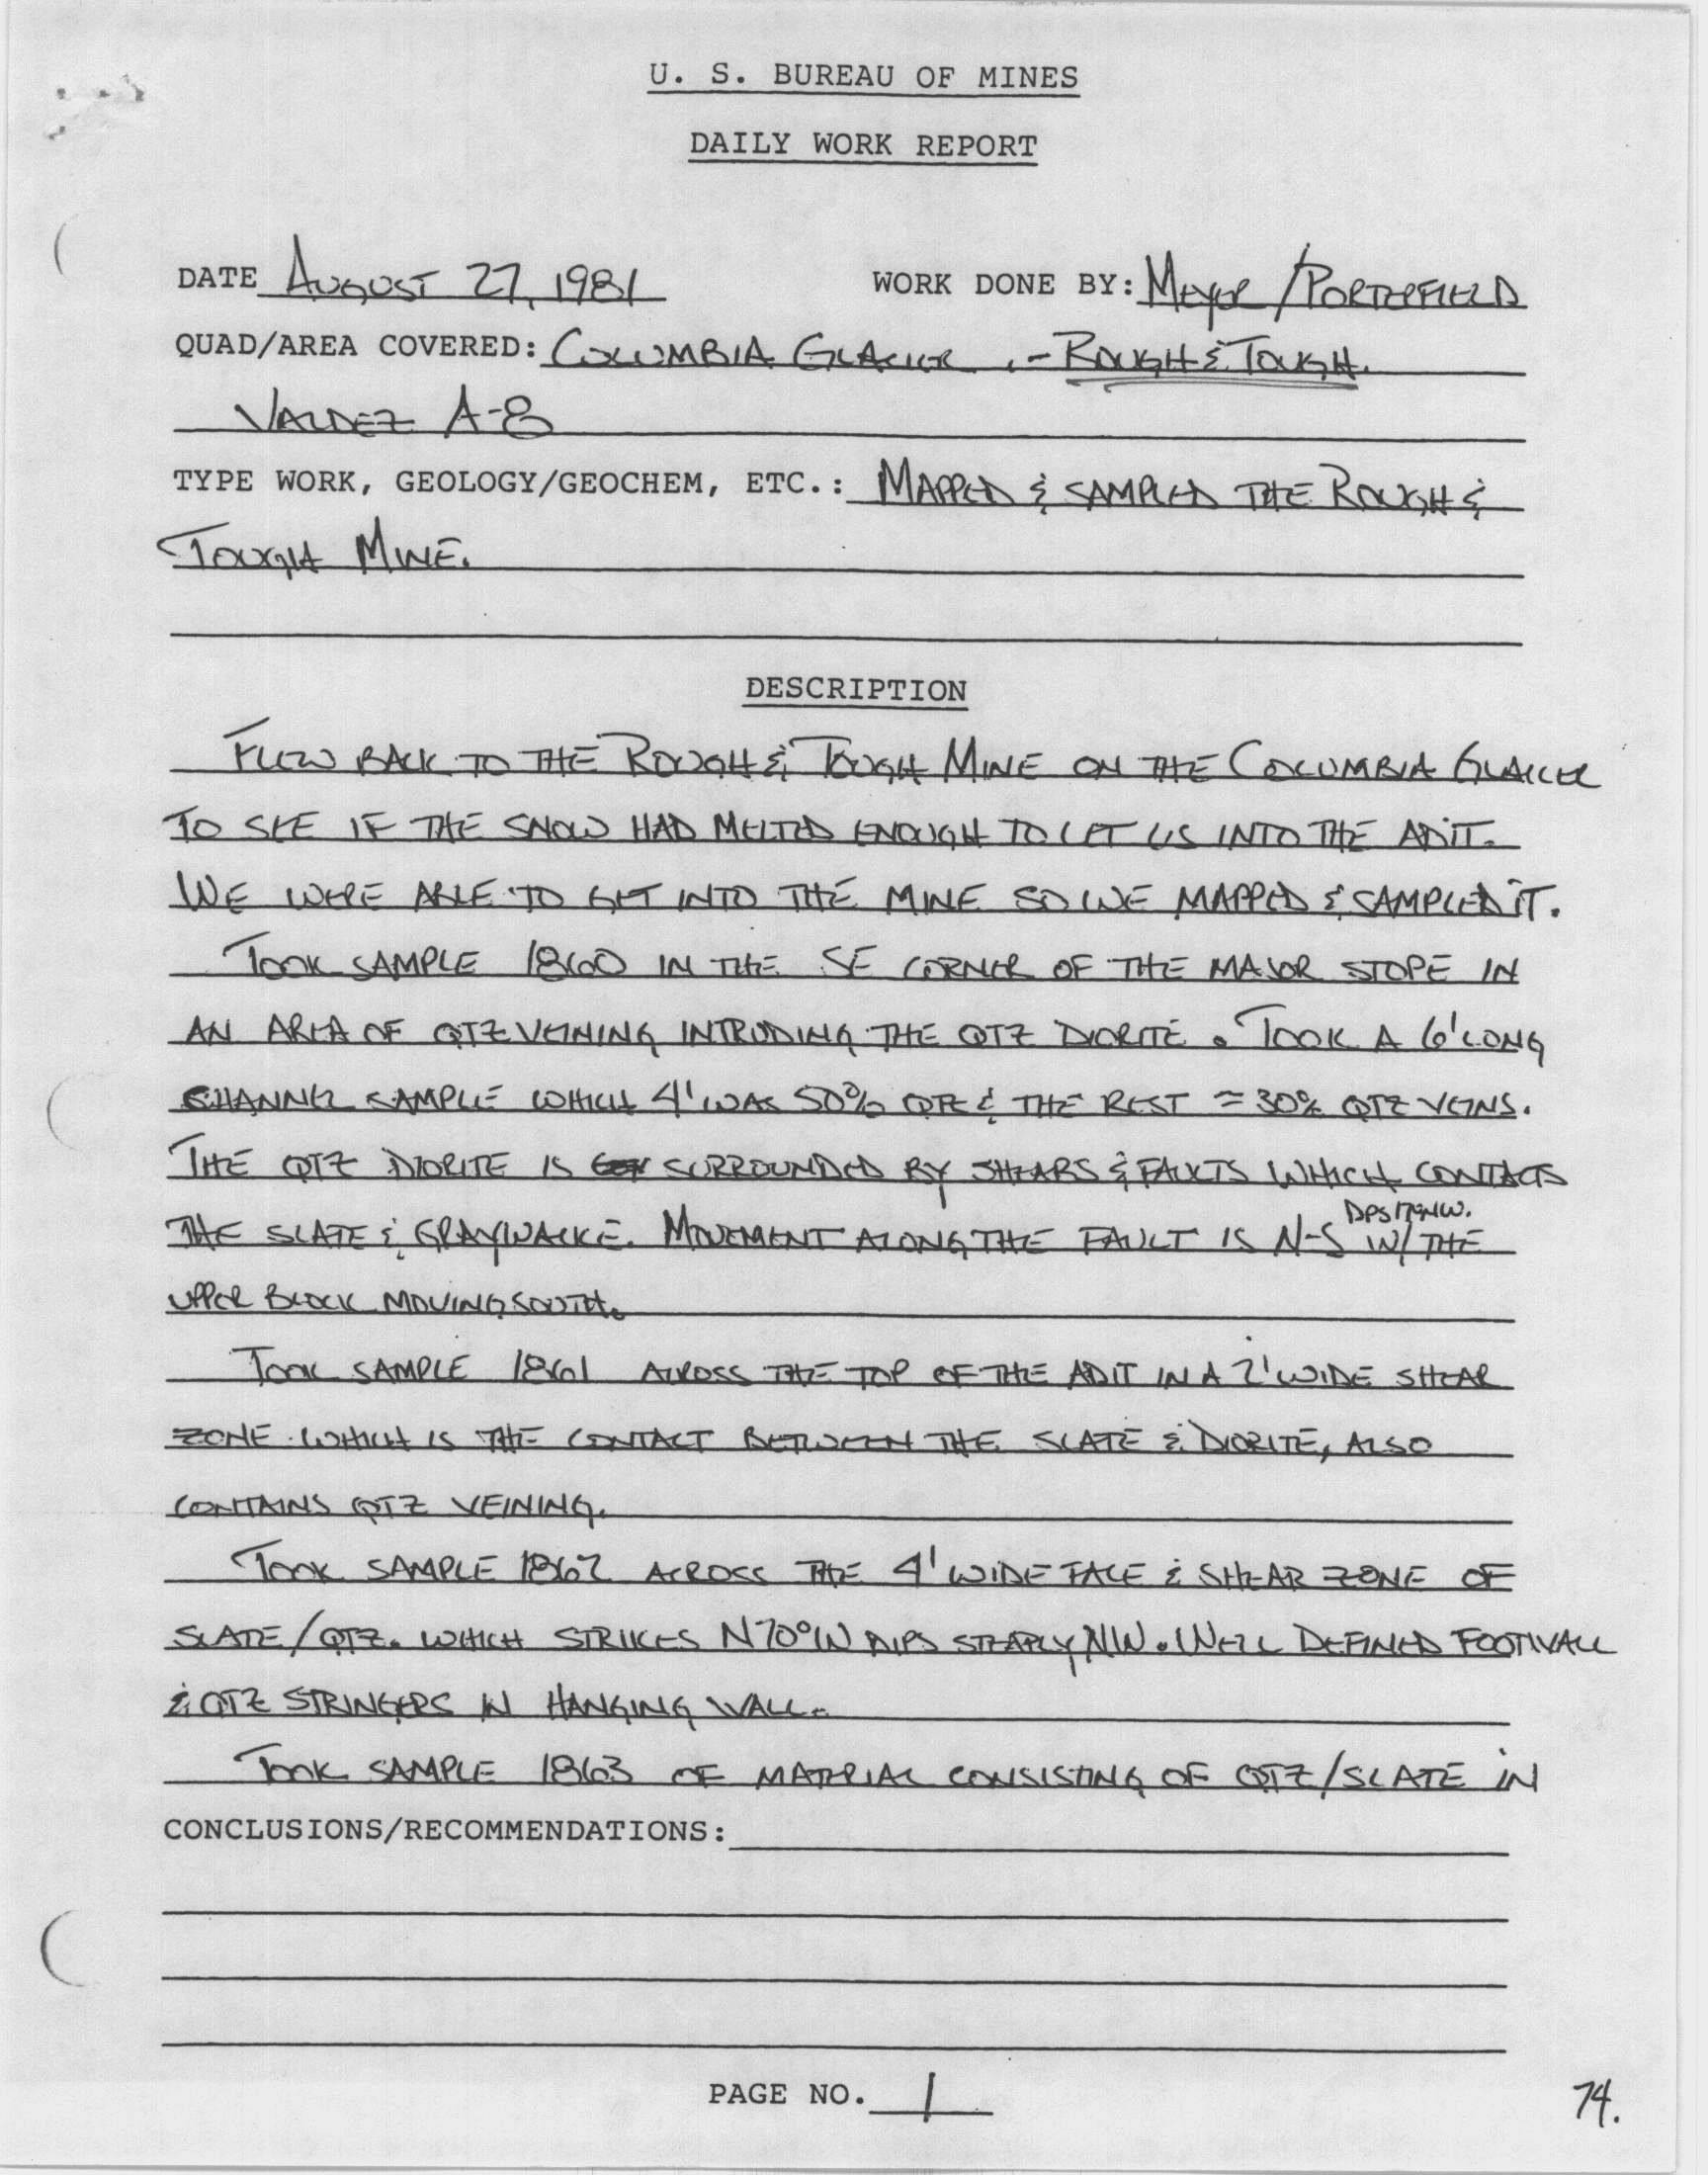 U. S. BUREAU OF MINES
DAILY WORK REPORT
DATE AUGUST 27, 1981 WORK DONE BY: MEYER / PORTERFIELD
QUAD/AREA COVERED: COLUMBIA GLACIER - ROUGH & TOUGH.
VALDEZ A-8
TYPE WORK, GEOLOGY/GEOCHEM, ETC.: MAPPED & SAMPLED THE ROUGH &
TOUGH MINE.
DESCRIPTION
FLEW BACK TO THE ROUGH & TOUGH MINE ON THE COLUMBIA GLACIER
TO SEE IF THE SNOW HAD MELTED ENOUGH TO LET US INTO THE ADIT.
WE WERE ABLE TO GET INTO THE MINE SO WE MAPPED & SAMPLED IT.
TOOK SAMPLE 1860 IN THE SE CORNER OF THE MAJOR STOPE IN
AN AREA OF QTZ VEINING INTRUDING THE QTZ DIORITE. TOOK A 6' LONG
CHANNEL SAMPLE WHICH 4' WAS 50% QTZ & THE REST ≈ 30% QTZ VEINS.
THE QTZ DIORITE IS SURROUNDED BY SHEARS & FAULTS WHICH CONTACTS
THE SLATE & GRAYWACKE. MOVEMENT ALONG THE FAULT IS N-S W/ THE
UPPER BLOCK MOVING SOUTH.
TOOK SAMPLE 1861 ACROSS THE TOP OF THE ADIT IN A 2' WIDE SHEAR
ZONE WHICH IS THE CONTACT BETWEEN THE SLATE & DIORITE, ALSO
CONTAINS QTZ VEINING.
TOOK SAMPLE 1862 ACROSS THE 4' WIDE FACE & SHEAR ZONE OF
SLATE/QTZ. WHICH STRIKES N70°W DIPS STEAPLY NW. WELL DEFINED FOOTWALL
& QTZ STRINGERS IN HANGING WALL.
TOOK SAMPLE 1863 OF MATERIAL CONSISTING OF QTZ/SLATE IN
CONCLUSIONS/RECOMMENDATIONS:
PAGE NO. 1
74.